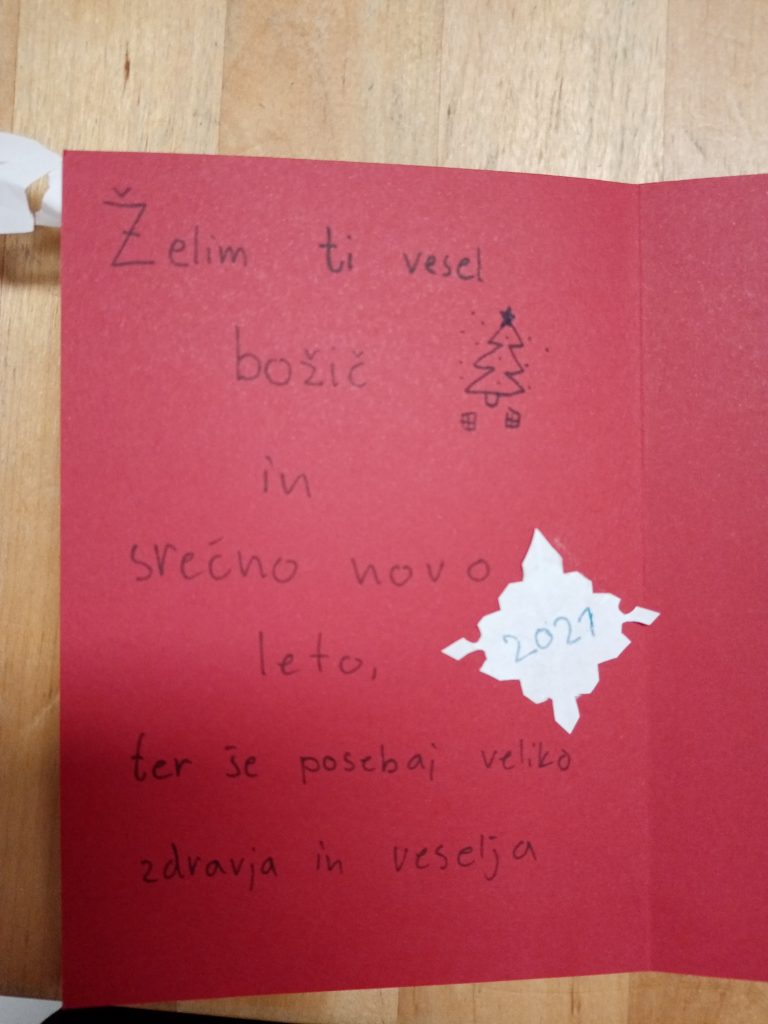 Želim ti vesel
božič
in
srečno novo
2021
leto,
ter še posebaj veliko
zdravja in veselja